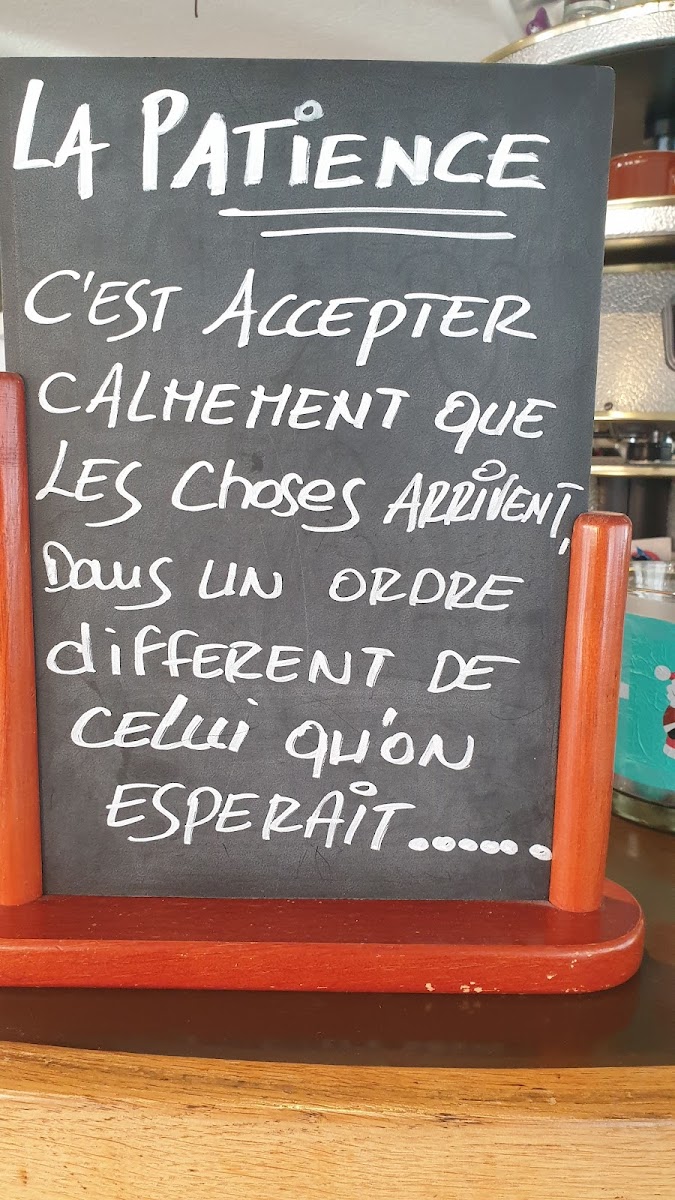 LA PATiENCE
C'EST ACCEPTER
CALMEMENT QUE
LES Choses ARRIVENT,
Dans UN ORDRE
diffERENT DE
CELUi QU'ON
ESPERAIT......